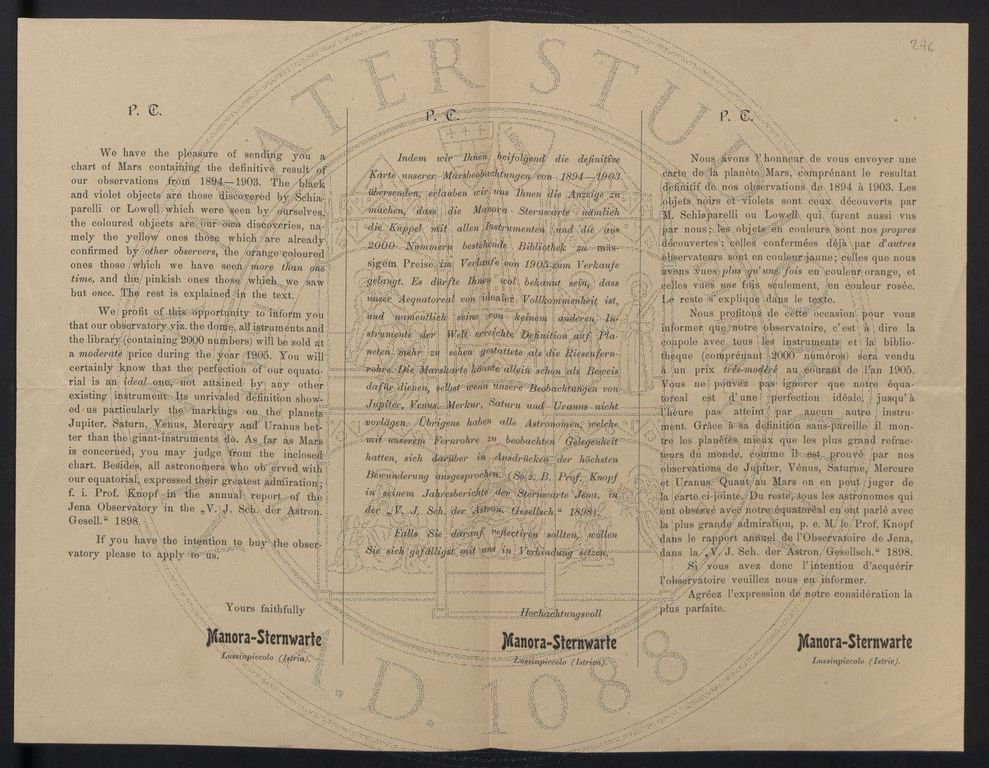 276
P. T.
We have the pleasure of sending you a
chart of Mars containing the definitive result of
our observations from 1894—1903. The black
and violet objects are those discovered by Schia
parelli or Lowell which were seen by ourselves,
the coloured objects are our own discoveries, na-
mely the yellow ones those which are already
confirmed by other observers, the orange coloured
ones those which we have seen more than one
time, and the pinkish ones those which we saw
but once. The rest is explained in the text.
We profit of this opportunity to inform you
that our observatory viz. the dome, all istruments and
the library (containing 2000 numbers) will be sold at
a moderate price during the year 1905. You will
certainly know that the perfection of our equato-
rial is an ideal one, not attained by any other
existing instrument. Its unrivaled definition show-
ed us particularly the markings on the planets
Jupiter, Saturn, Venus, Mercury and Uranus bet-
ter than the giant-instruments do. As far as Mars
is concerned, you may judge from the inclosed
chart. Besides, all astronomers who ob erved with
our equatorial, expressed their greatest admiration;
f. i. Prof. Knopf in the annual report of the
Jena Observatory in the „V. J. Sch. der Astron.
Gesell.“ 1898.
If you have the intention to buy the obser-
vatory please to apply to us.
Yours faithfully
Manora-Sternwarte
Lussinpiccolo (Istria).
P. T.
Indem wir Ihnen beifolgend die definitive
Karte unserer Marsbeobachtungen von 1894—1903
übersenden, erlauben wir uns Ihnen die Anzeige zu
machen, dass die Manora-Sternwarte nämlich
die Kuppel mit allen Instrumenten und die aus
2000 Nummern bestehende Bibliothek zu mäs-
sigem Preise im Verlaufe von 1905 zum Verkaufe
gelangt. Es dürfte Ihnen wol bekannt sein, dass
unser Aequatoreal von idealer Vollkommenheit ist,
und namentlich seine von keinem anderen In-
strumente der Welt erreichte Definition auf Pla-
neten mehr zu sehen gestattete als die Riesenfern-
rohre. Die Marskarte könnte allein schon als Beweis
dafür dienen, selbst wenn unsere Beobachtungen von
Jupiter, Venus, Merkur, Saturn und Uranus nicht
vorlägen. Übrigens haben alle Astronomen, welche
mit unserem Fernrohre zu beobachten Gelegenheit
hatten, sich darüber in Ausdrücken der höchsten
Bewunderung ausgesprochen. (So z. B. Prof. Knopf
in seinem Jahresberichte der Sternwarte Jena, in
der „V. J. Sch. der Astron. Gesellsch.“ 1898).
Falls Sie darauf reflectiren sollten, wollen
Sie sich gefälligst mit uns in Verbindung setzen.
Hochachtungsvoll
Manora-Sternwarte
Lussinpiccolo (Istrien).
P. T.
Nous avons l'honneur de vous envoyer une
carte de la planète Mars, comprénant le resultat
definitif de nos observations de 1894 à 1903. Les
objets noirs et violets sont ceux découverts par
M. Schiaparelli ou Lowell qui furent aussi vus
par nous; les objets en couleurs sont nos propres
découvertes: celles confermées déjà par d'autres
observateurs sont en couleur jaune; celles que nous
avons vues plus qu'une fois en couleur orange, et
celles vues une fois seulement, en couleur rosée.
Le reste s'explique dans le texte.
Nous profitons de cette occasion pour vous
informer que notre observatoire, c'est à dire la
coupole avec tous les instruments et la biblio-
thèque (comprénant 2000 numéros) sera vendu
à un prix très-modéré au courant de l'an 1905.
Vous ne pouvez pas ignorer que notre équa-
toreal est d'une perfection idéale, jusqu'à
l'heure pas atteint par aucun autre instru-
ment. Grâce à sa définition sans-pareille il mon-
tre les planètes mieux que les plus grand refrac-
teurs du monde, comme il est prouvé par nos
observations de Jupiter, Vénus, Saturne, Mercure
et Uranus. Quant au Mars on en peut juger de
la carte ci-jointe. Du reste, tous les astronomes qui
ont observé avec notre équatoréal en ont parlé avec
la plus grande admiration, p. e. M. le Prof. Knopf
dans le rapport annuel de l'Observatoire de Jena,
dans la „V. J. Sch. der Astron. Gesellsch.“ 1898.
Si vous avez donc l'intention d'acquérir
l'observatoire veuillez nous en informer.
Agréez l'expression de notre considération la
plus parfaite.
Manora-Sternwarte
Lussinpiccolo (Istrie).
A.D. 1088